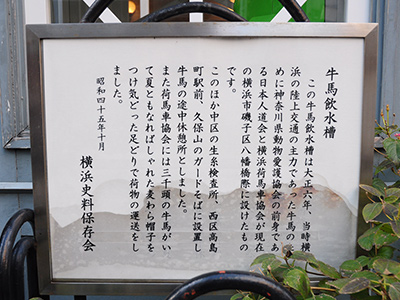 牛馬飲水槽
この牛馬飲水槽は大正六年、当時横
浜の陸上交通の主力であった牛馬の
めに神奈川県動物愛護協会の前身であ
る日本人道会と横浜荷馬車協会が現在
の横浜市磯子区八幡橋際に設けたもの
です。
このほか中区の生糸検査所、西区高島
町駅前、久保山のガードそばに設置し
牛馬の途中休憩所としました。
また荷馬車協会には三千頭の牛馬がい
て夏ともなればしゃれた麦わら帽子を
つけ気どった足どりで荷物の運送をし
ました。
昭和四十五年十月
横浜史料保存会